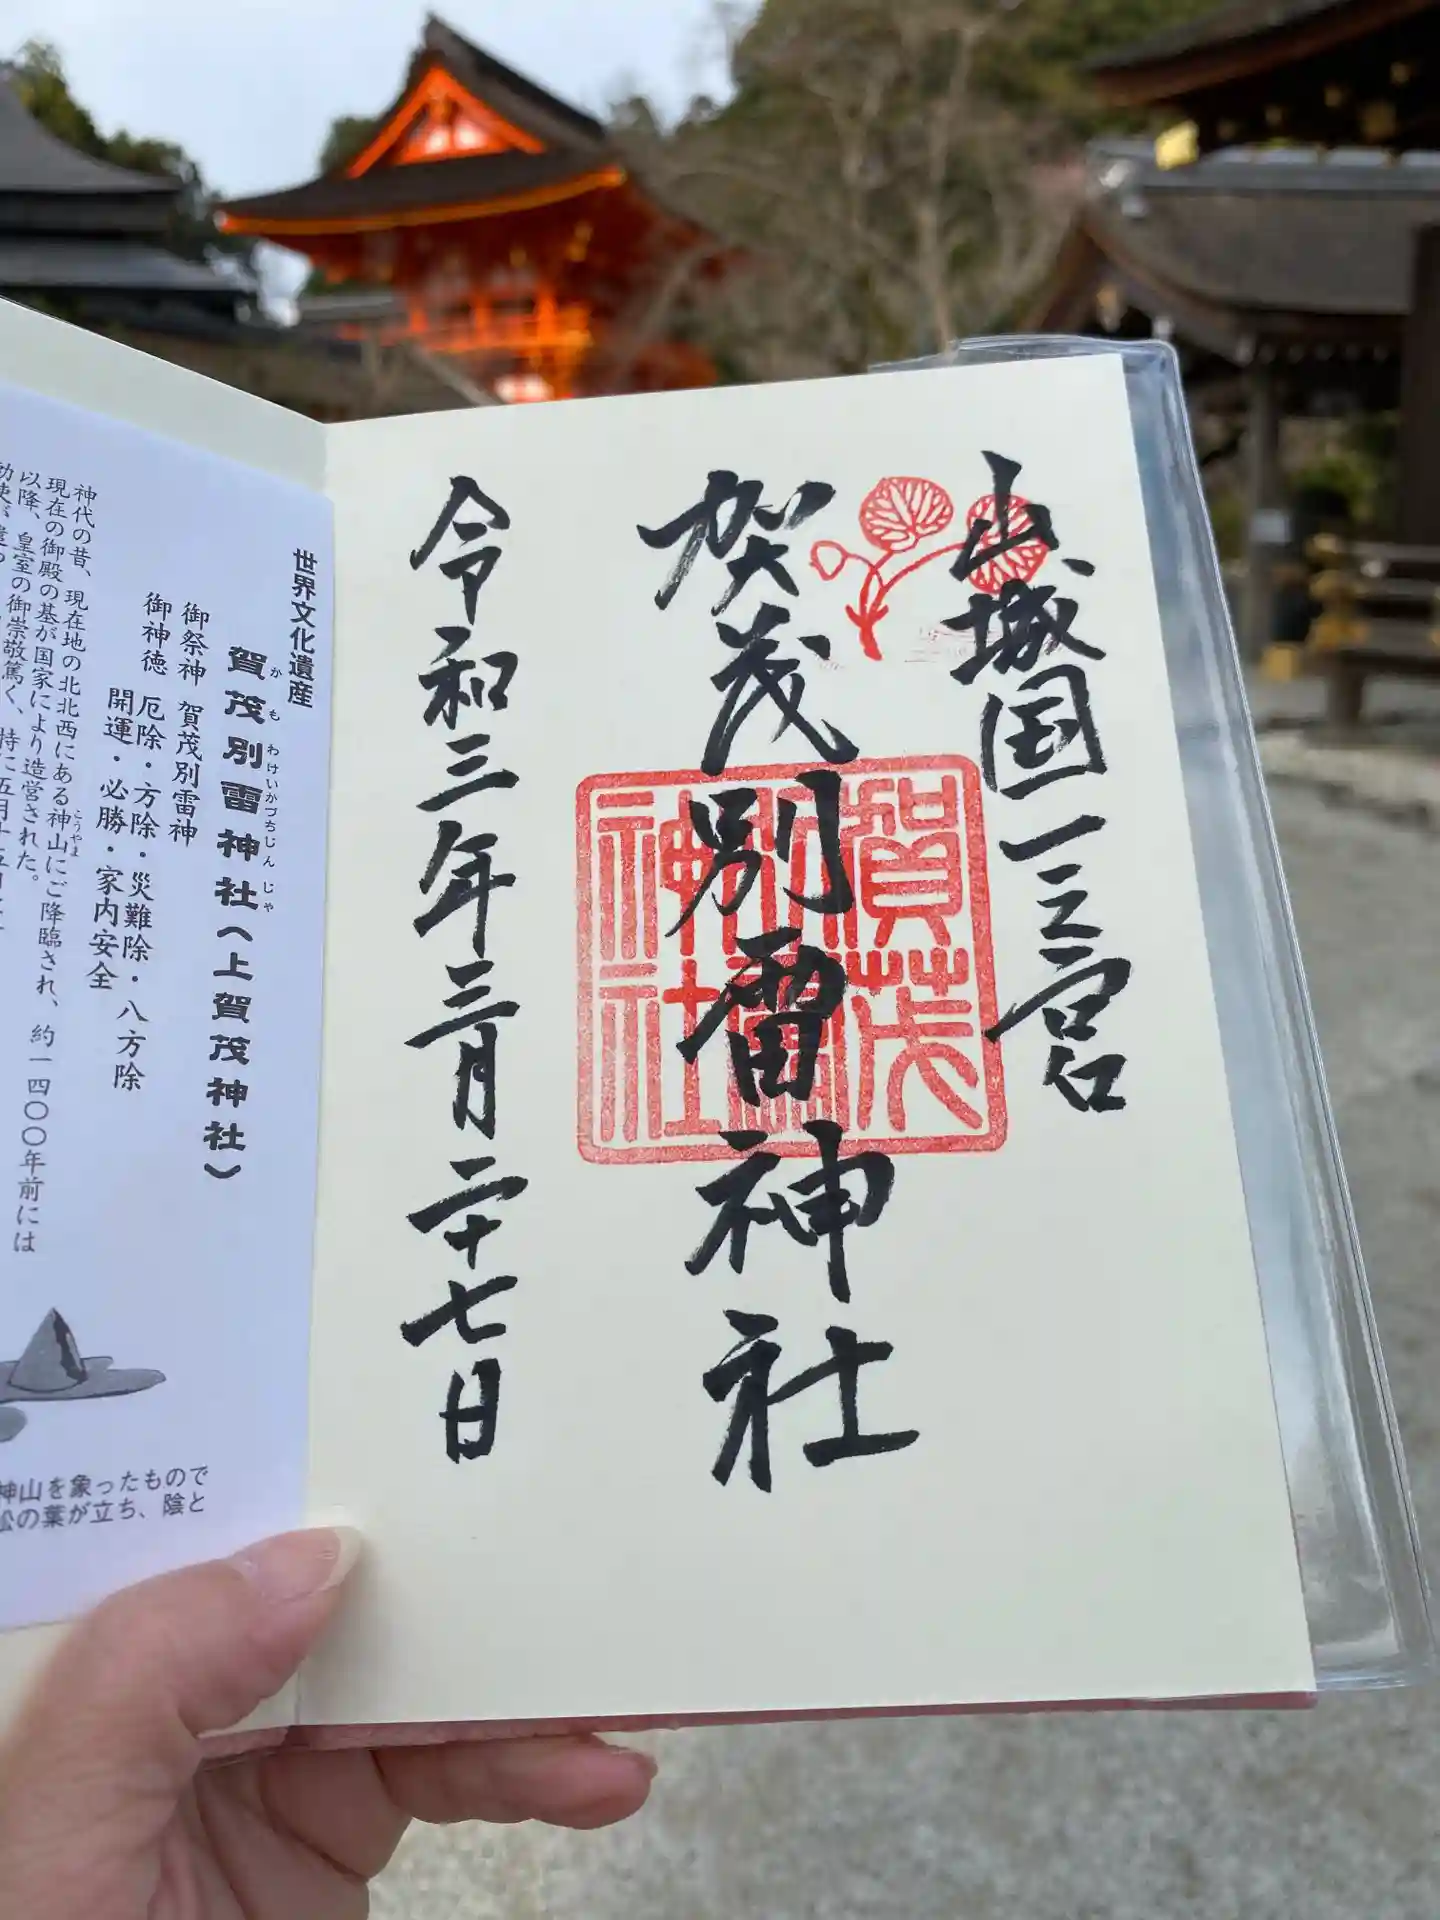 山城国一之宮
賀茂別雷神社
賀茂
別雷
神社
令和三年三月二十七日
世界文化遺産
賀茂別雷神社(上賀茂神社)
かもわけいかづちじんじゃ
御祭神 賀茂別雷神
御神徳 厄除・方除・災難除・八方除
開運・必勝・家内安全
神代の昔、現在地の北北西にある神山にご降臨され、約一四〇〇年前には
こうやま
現在の御殿の基が国家により造営された。
以降、皇室の御崇敬篤く、特に五月十五日
神山を象ったもので
松の葉が立ち、陰と